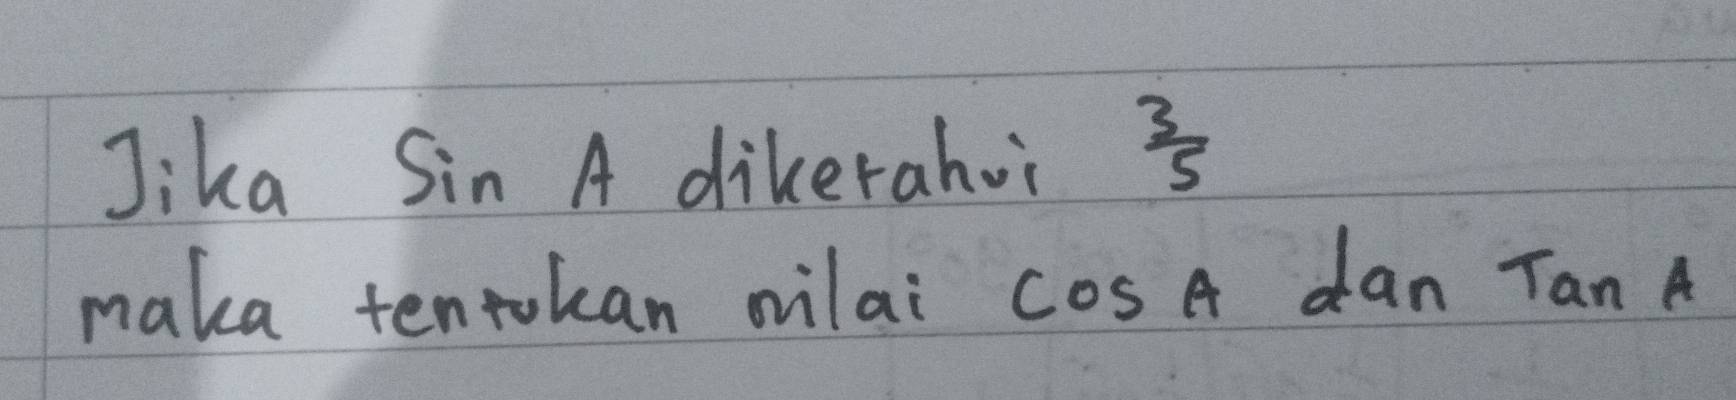 Jika Sin A diketahui 3/5
maka tentukan nilai cos A dan Tan A